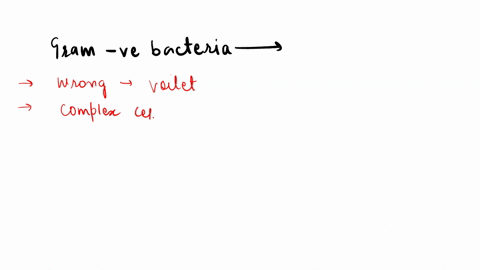 Gram -ve bacteria →
→ wrong → voilet
→ complex cel